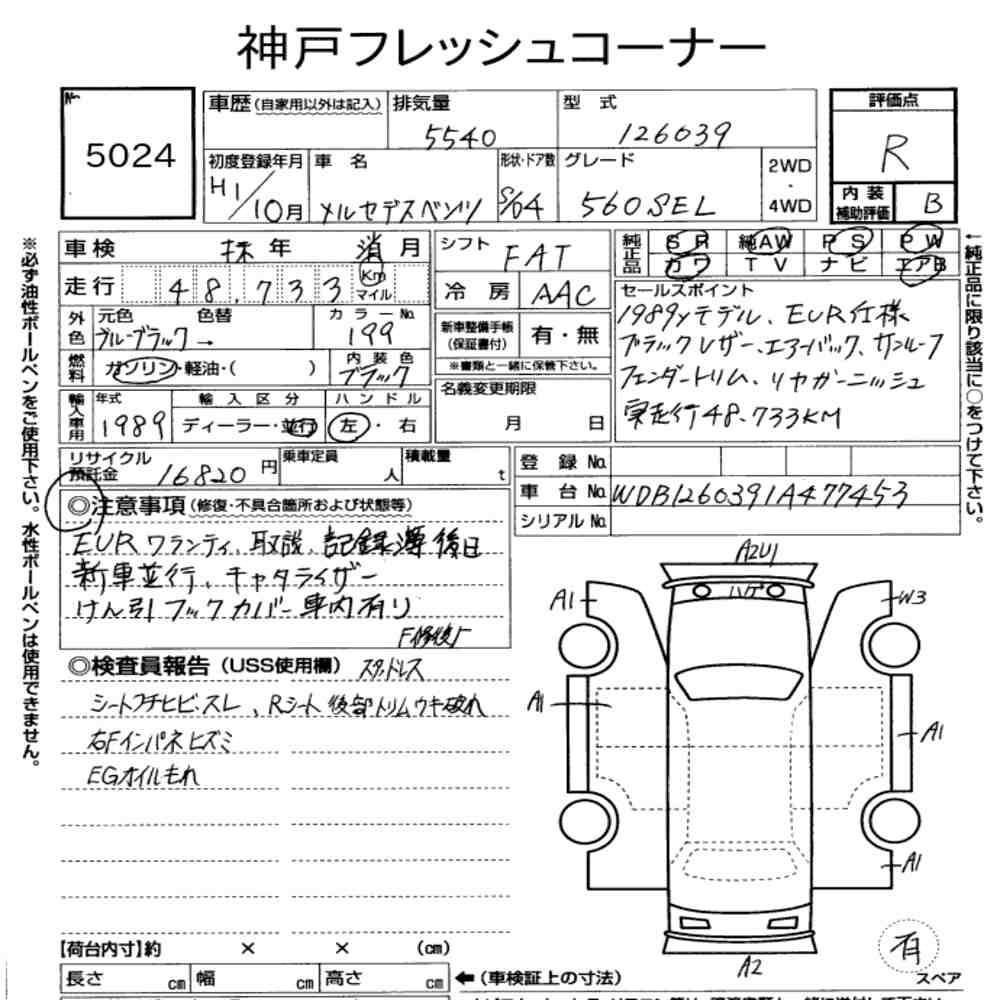 神戸フレッシュコーナー
No.
5024
車歴 (自家用以外は記入)
排気量
5540
型 式
126039
初度登録年月
H1/10月
車 名
メルセデスベンツ
形状・ドア数
S/04
グレード
560SEL
2WD
・
4WD
評価点
R
内 装
補助評価
B
※必ず油性ボールペンをご使用下さい。水性ボールペンは使用できません。
車検 抹 年 消 月
走行 48,733 Km マイル
外色
元色 色替
ブルーブラック →
カラーNo.
199
燃料
ガソリン・軽油・( )
内装色
ブラック
輸入車用
年式
1989
輸入区分
ディーラー・並行
ハンドル
左・右
シフト
FAT
冷 房
AAC
新車整備手帳
(保証書付)
有・無
※書類と一緒に保管下さい。
名義変更期限
月 日
純正品
SR 純AW PS PW
カワ TV ナビ エアB
セールスポイント
1989yモデル、EUR仕様
ブラックレザー、エアーバック、サンルーフ
フェンダートリム、リヤガーニッシュ
実走行48.733KM
←純正品に限り該当に○をつけて下さい。
リサイクル
預託金
16820 円
乗車定員
人
積載量
t
登 録 No.
車 台 No.
WDB1260391A477453
シリアル No.
◎注意事項 (修復・不具合箇所および状態等)
EURワランティ、取説、記録簿後日
新車並行、キャタライザー
けん引フックカバー車内有り
◎検査員報告 (USS使用欄)
スタッドレス
シートフチヒビ・スレ、Rシート後部トリムウキ破れ
右Fインパネヒズミ
EGオイルもれ
A2U1
ハゲ
A1
W3
A1
A1
A1
A2
有
スペア
【荷台内寸】約 × × (cm)
長さ cm 幅 cm 高さ cm
←(車検証上の寸法)